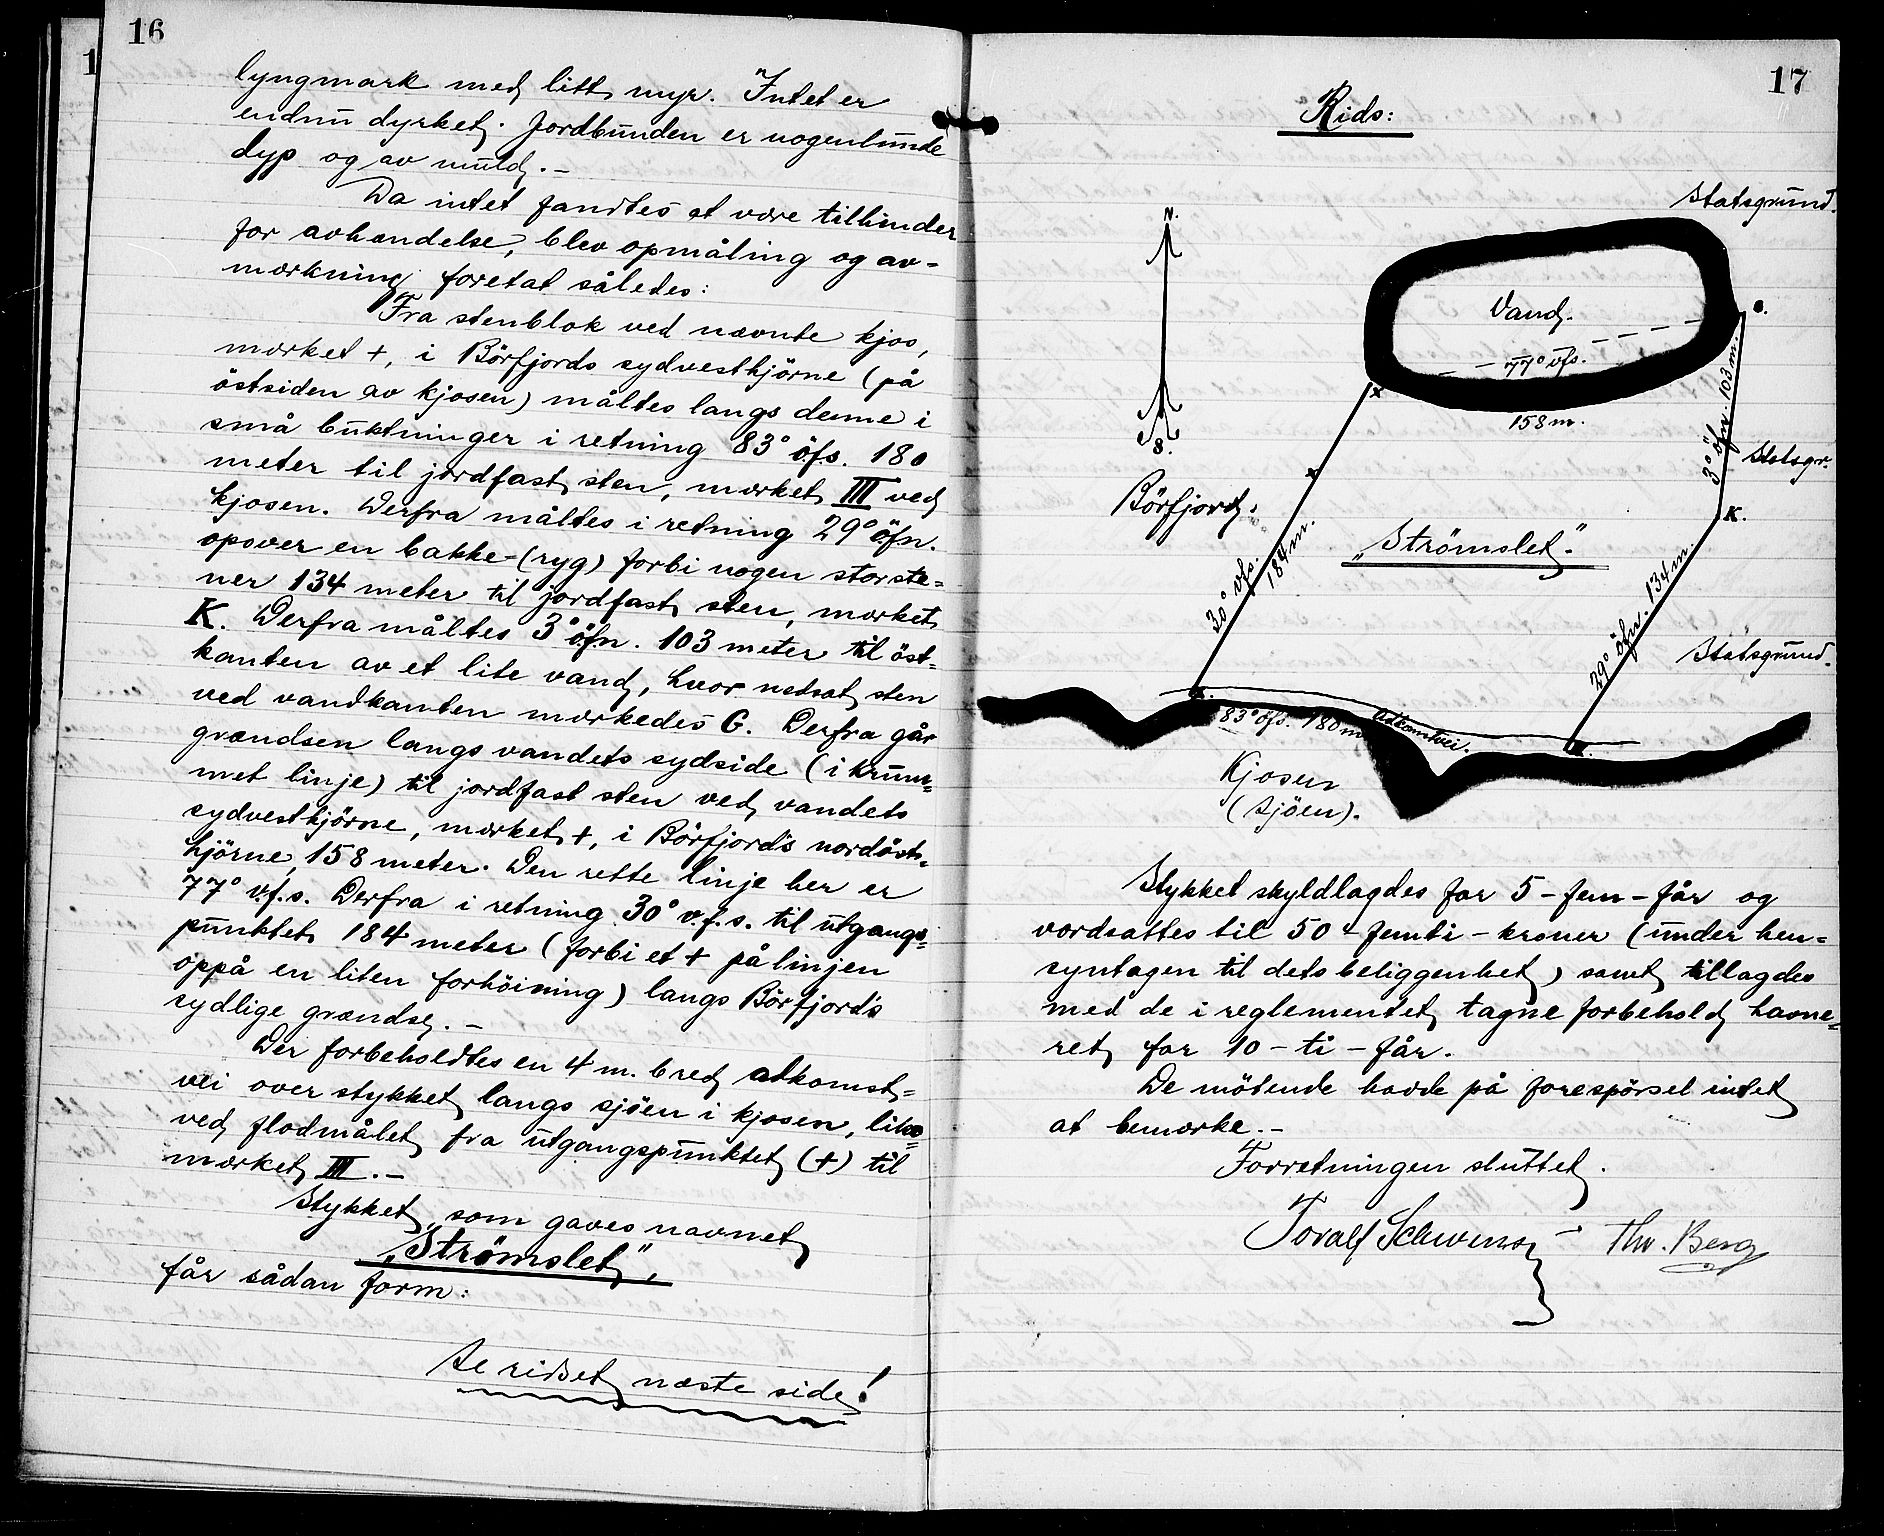 16
lyngmark med litt myr. Intet er
endnu dyrket. Jordbunden er nogenlunde
dyp og av muld.-
Da intet fandtes at være tilhinder
for avhændelse, blev opmåling og av-
mærkning foretat således:
Fra stenblok ved nævnte kjos,
mærket +, i Börfjords sydvesthjörne (på
östsiden av kjosen) måltes langs denne i
små buktninger i retning 83° ö.f.s. 180
meter til jordfast sten, mærket III ved
kjosen. Derfra måltes i retning 29° öfn.
opover en bakke-(ryg) forbi nogen storste=
ner 134 meter til jordfast sten, mærket
K. Derfra måltes 3° öfn. 103 meter til öst=
kanten av et lite vand, hvor nedsat sten
ved vandkanten mærkedes G. Derfra går
grændsen langs vandets sydside (i krum=
met linje) til jordfast sten ved vandets
sydvesthjörne, mærket +, i Börfjord's nordöst=
hjörne, 158 meter. Den rette linje her er
77° v.f.s. Derfra i retning 30° v.f.s. til utgangs=
punktet 184 meter (forbi et + på linjen
oppå en liten forhöining) langs Börfjord's
sydlige grændse.-
Der forbeholdtes en 4 m. bred atkomst=
vei over stykket langs sjöen i kjosen, like
ved flodmålet fra utgangspunktet (+) til
mærket III.-
Stykket, som gaves navnet
"Strömslet",
får sådan form:
Se ridset næste side!
17
Rids:
Statsgrund.
N.
Vand.
G.
77° vfs.
158 m.
3° öfn. 103 m.
+
+
S.
Statsgr.
Börfjord.
K.
"Strömslet".
30° vfs.
184 m.
29° öfn. 134 m.
Statsgrund.
83° öfs. 180 m.
Atkomstvei.
III.
Kjosen
(sjöen).
Stykket skyldlagdes for 5 - fem - får og
værdsattes til 50 - femti - kroner (under hen=
syntagen til dets beliggenhet) samt tillagdes
med de i reglementet tagne forbehold havne=
ret for 10 - ti - får.
De mötende havde på forespörsel intet
at bemærke.-
Forretningen sluttet.
Toralf - Thv. Berg